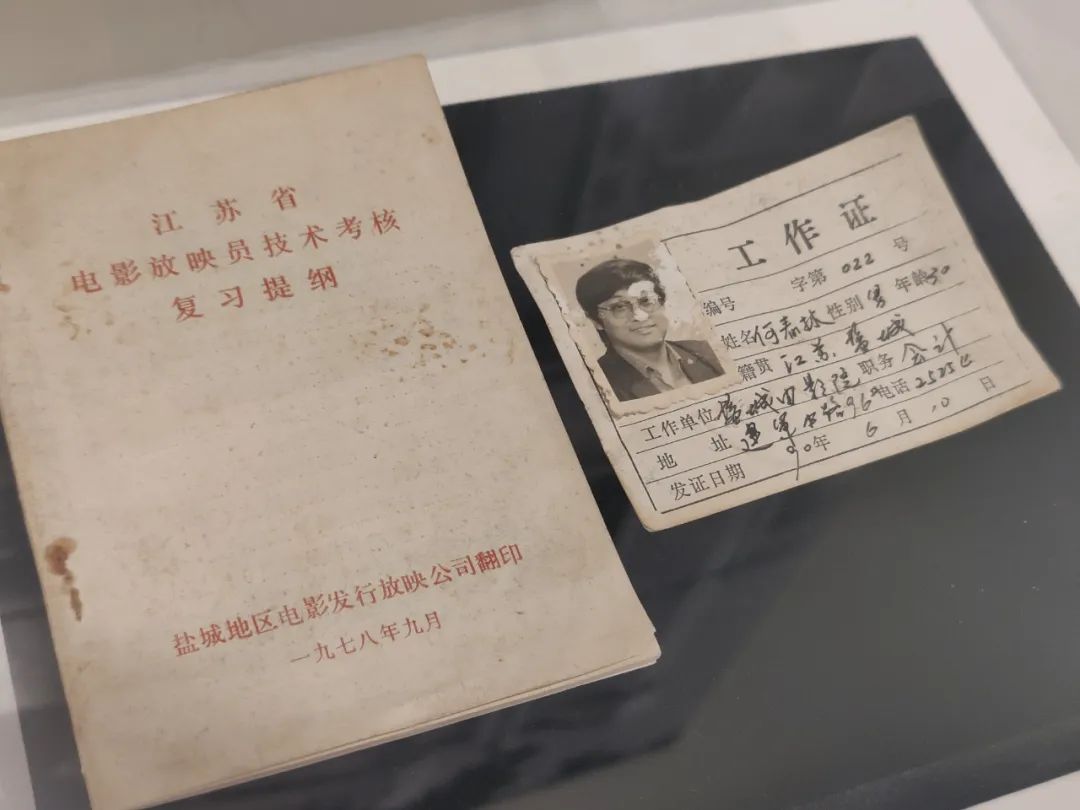 江苏省
电影放映员技术考核
复习提纲
盐城地区电影发行放映公司翻印
一九七八年九月
工作证
编号 字第 022 号
姓名 何春林 性别 男 年龄 30
籍贯 江苏 盐城
职务 会计
工作单位 盐城电影院
地址 建军中路96# 电话 2525
发证日期 90年 6月 10日